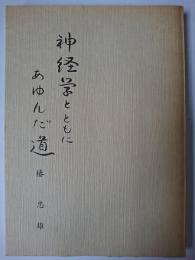 神経学とともに
あゆんだ道
椿 忠雄